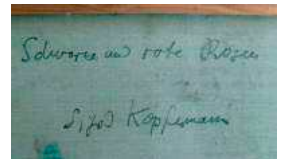 Schwarze und rote Rosen
Sigrid Kopfermann